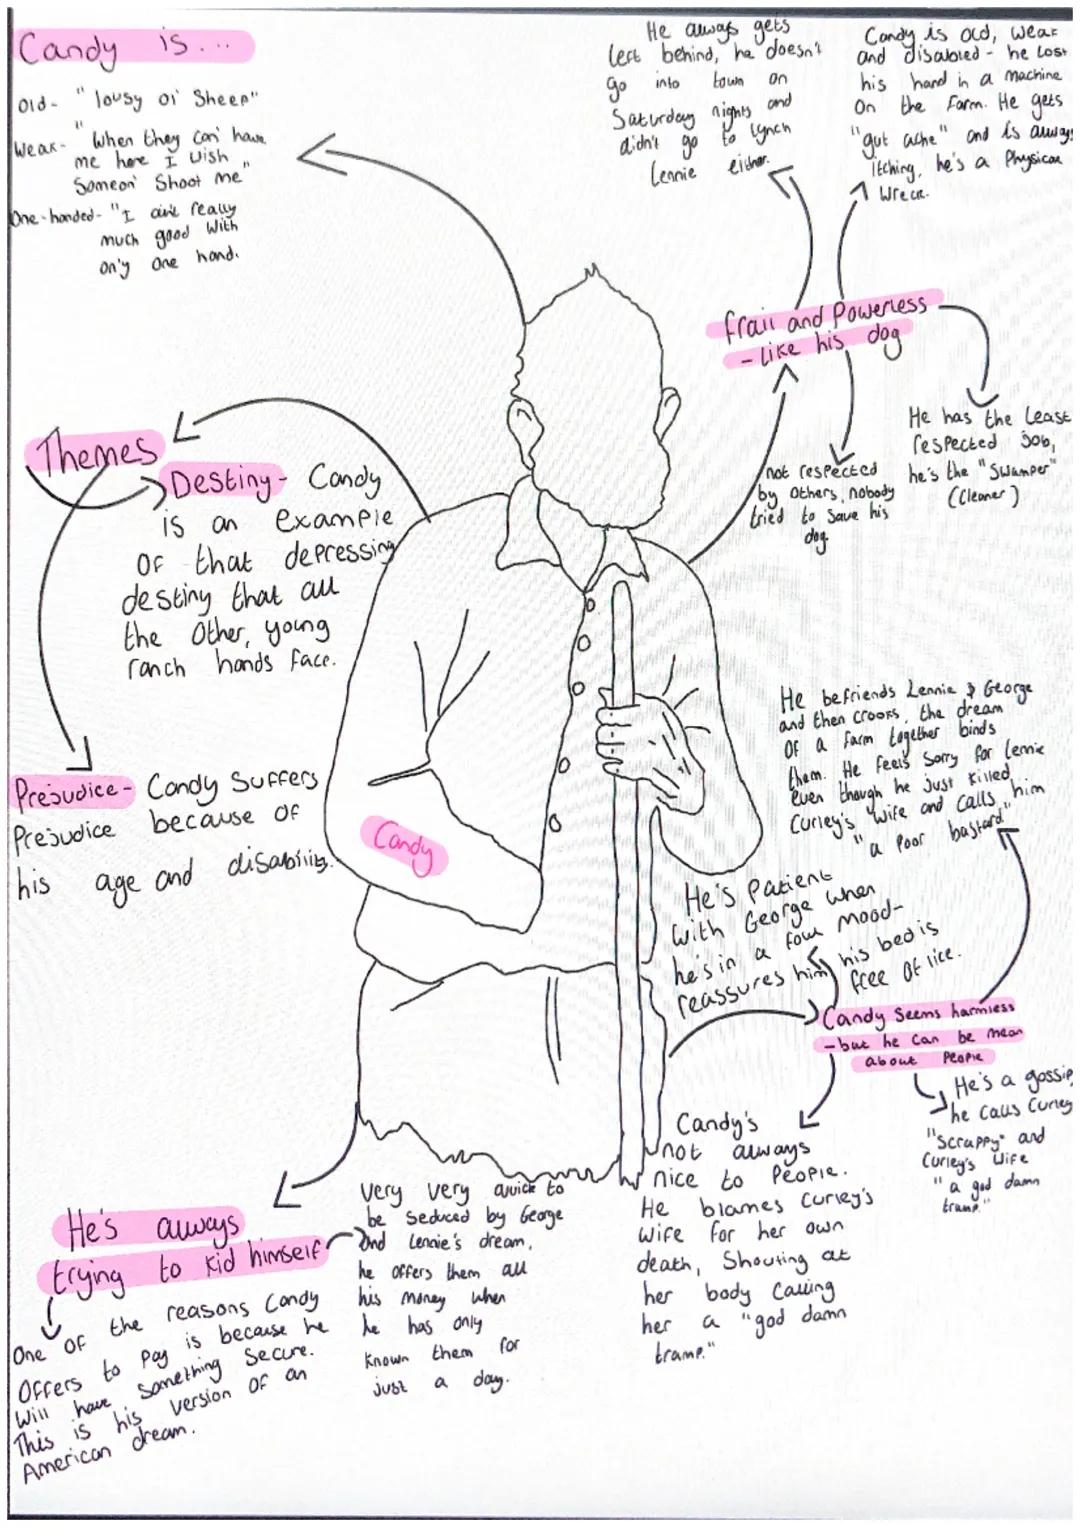 Candy is...
Old- "lousy ol' Sheep"
Weak- "When they can' have
me here I wish
Someon' Shoot me"
One-handed- "I ain't really
much good with
on'y one hand.
He always gets
left behind, he doesn't
go into town on
Saturday nights and
didn't go to lynch
Lennie either.
Candy is old, weak
and disabled - he lost
his hand in a machine
on the farm. He gets
"gut ache" and is always
itching, he's a Physical
Wreck.
frail and Powerless
- like his dog
He has the least
respected Job,
he's the "Swamper"
(Cleaner)
not respected
by others, nobody
tried to save his
dog.
Themes
Destiny- Candy
is an example
of that depressing
destiny that all
the other, young
ranch hands face.
Prejudice- Candy Suffers
Prejudice because of
his age and disability.
Candy
He befriends Lennie & George
and then Crooks, the dream
of a farm together binds
them. He feels sorry for Lennie
even though he just killed
Curley's wife and calls him
"a poor bastard"
He's Patient
with George when
he's in a foul mood-
reassures him his bed is
free of lice.
Candy Seems harmless
- but he can be mean
about People
He's a gossip
he calls Curley
"Scrappy" and
Curley's Wife
"a god damn
tramp."
Candy's
not always
nice to People.
He blames Curley's
wife for her own
death, Shouting at
her body Calling
her a "god damn
tramp."
He's always
trying to kid himself
Very very quick to
be Seduced by George
and Lennie's dream,
he offers them all
his money when
he has only
Known them for
just a day.
One of the reasons Candy
Offers to Pay is because he
Will have something Secure.
This is his version of an
American dream.